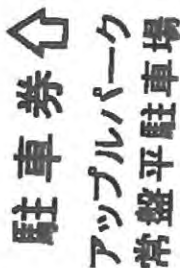 駐車券
アップルパーク
常盤平駐車場